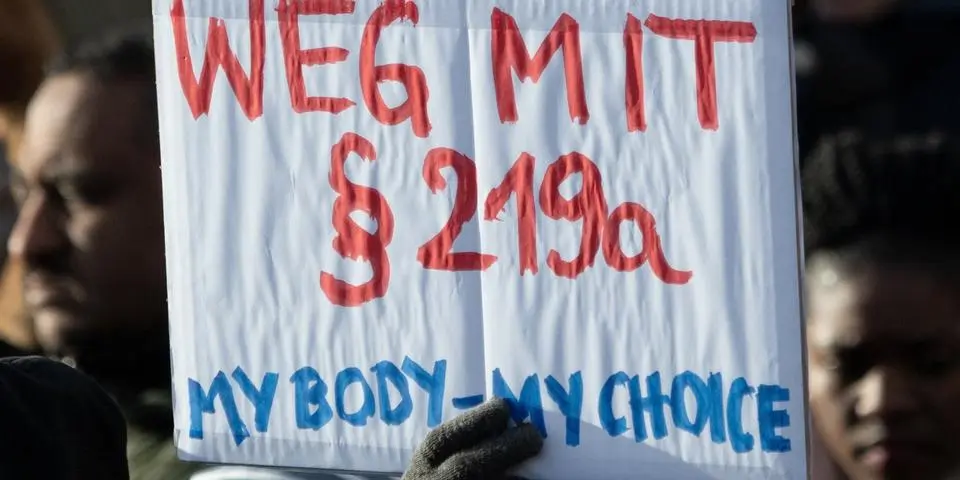 WEG MIT
§ 219a
MY BODY - MY CHOICE